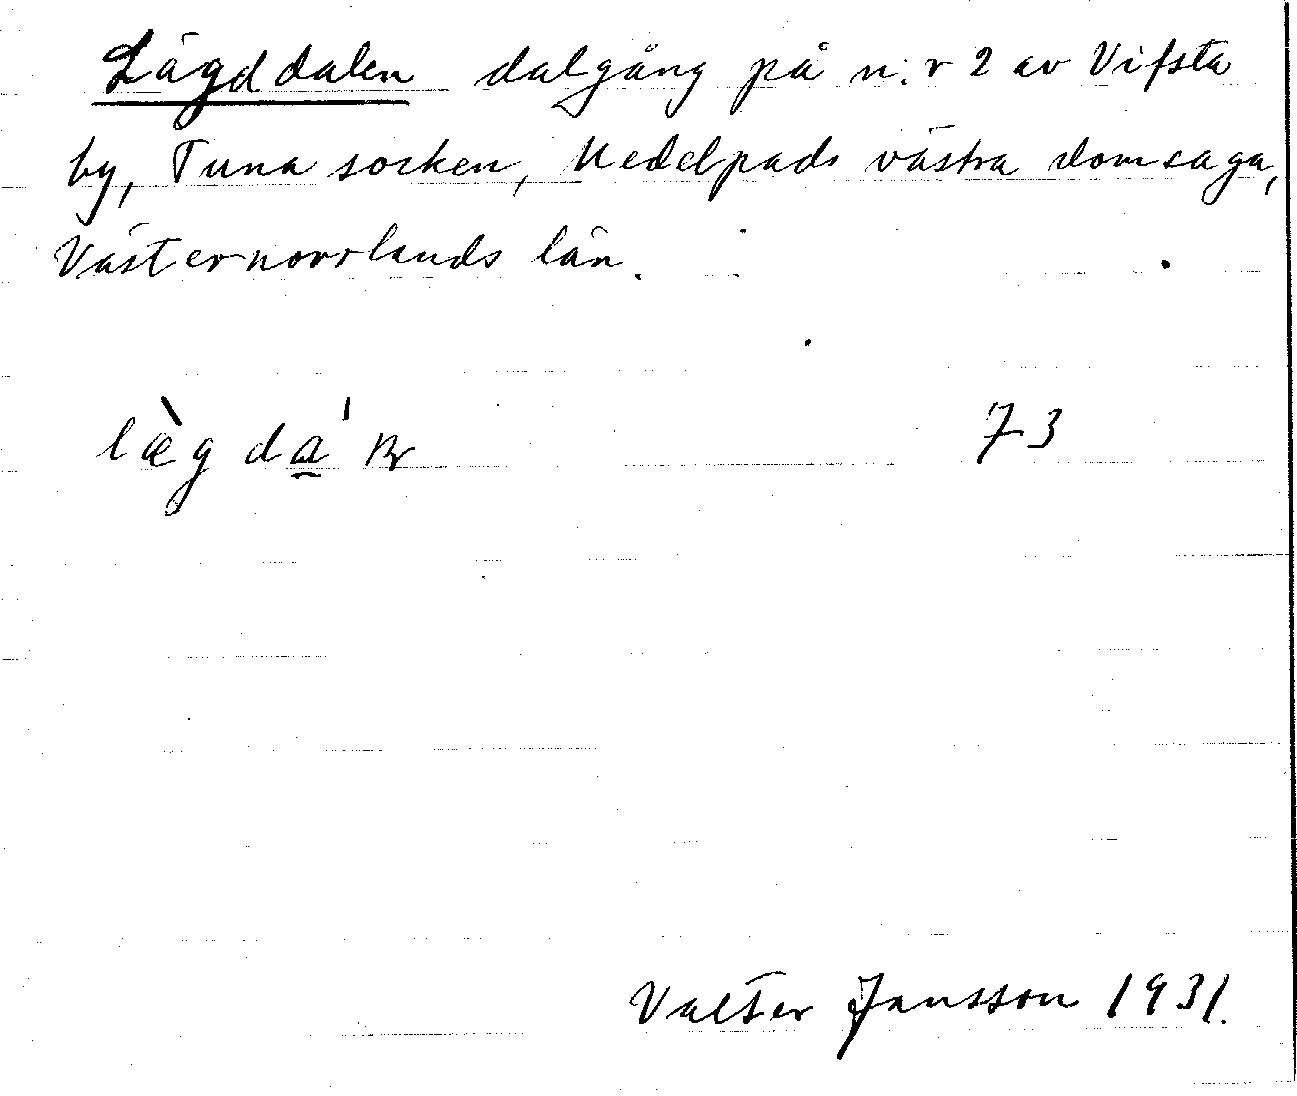 Lägddalen dalgång på n:r 2 av Vifsta
by, Tuna socken, Medelpads västra domsaga,
Västernorrlands län.
73
Valter Jansson 1931.